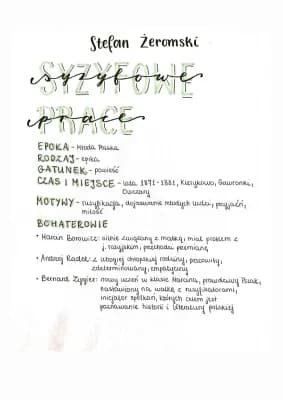 Stefan Żeromski
SYZYFOWE
PRACE
EPOKA - Młoda Polska
RODZAJ - epika
GATUNEK - powieść
CZAS I MIEJSCE - lata 1871-1881, Klerykowo, Gawronki,
Owczary
MOTYWY - rusyfikacja, dojrzewanie młodych ludzi, przyjaźń,
miłość
BOHATEROWIE
• Marcin Borowicz: silnie związany z matką, miał problem z
j. rosyjskim, przechodzi przemianę
• Andrzej Radek: z ubogiej chłopskiej rodziny, pracowity,
zdeterminowany, empatyczny
• Bernard Zygier: nowy uczeń w klasie Marcina, prawdziwy Polak,
nastawiony na walkę z rusyfikatorami,
inicjator spotkań, których celem jest
poznawanie historii i literatury polskiej